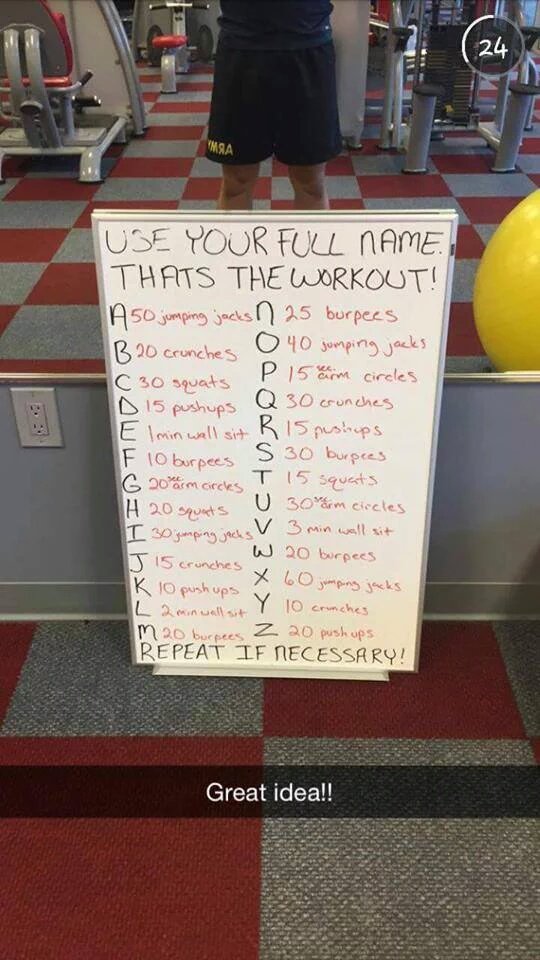 24
ARMY
USE YOUR FULL NAME.
THATS THE WORKOUT!
A 50 jumping jacks
B 20 crunches
C 30 squats
D 15 pushups
E 1 min wall sit
F 10 burpees
G 20 sec arm circles
H 20 squats
I 30 jumping jacks
J 15 crunches
K 10 push ups
L 2 min wall sit
M 20 burpees
N 25 burpees
O 40 jumping jacks
P 15 sec arm circles
Q 30 crunches
R 15 pushups
S 30 burpees
T 15 squats
U 30 sec arm circles
V 3 min wall sit
W 20 burpees
X 60 jumping jacks
Y 10 crunches
Z 20 push ups
REPEAT IF NECESSARY!
Great idea!!